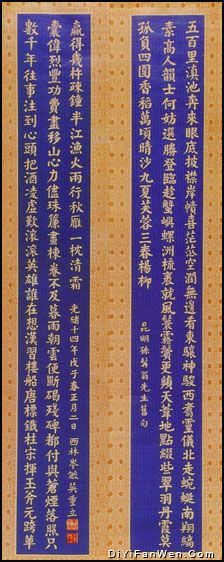 五百里滇池奔來眼底披襟岸幘喜茫茫空闊無邊看東驤神駿西翥靈儀北走蜿蜒南翔縞
素高人韻士何妨選勝登臨趁蟹嶼螺洲梳裹就風鬟霧鬢更蘋天葦地點綴些翠羽丹霞莫
孤負四圍香稻萬頃晴沙九夏芙蓉三春楊柳
昆明孫髯翁先生舊句
數千年往事注到心頭把酒凌虛歎滾滾英雄誰在想漢習樓船唐標鐵柱宋揮玉斧元跨革
囊偉烈豐功費盡移山心力儘珠簾畫棟卷不及暮雨朝雲便斷碣殘碑都付與蒼煙落照只
贏得幾杵疎鐘半江漁火兩行秋雁一枕清霜 光緒十四年戊子春正月二日 西林岑毓英重立
DiYiFanWen.Com